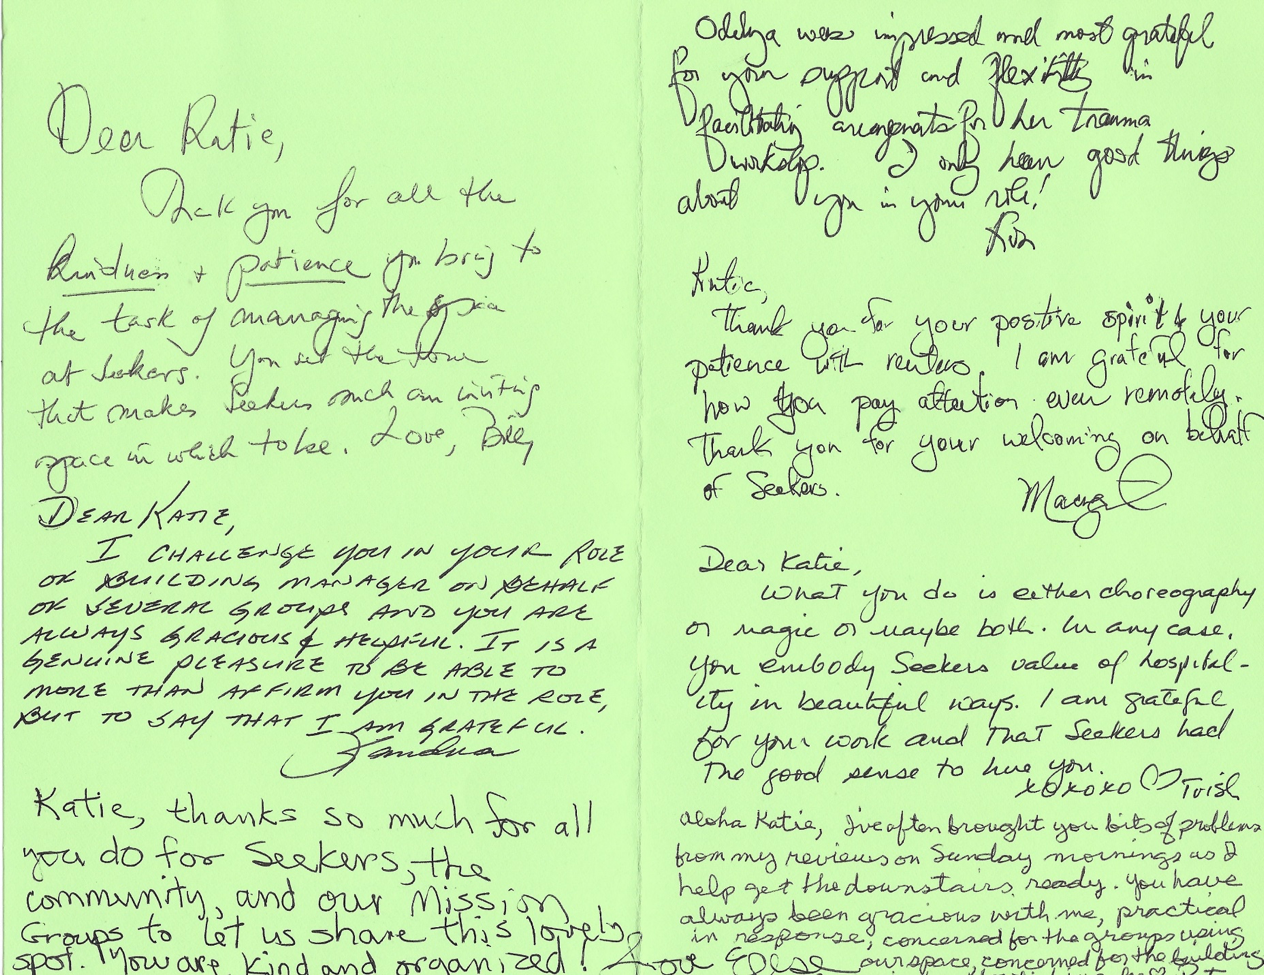 Dear Katie,
Thank you for all the
kindness + patience you bring to
the task of managing the space
at Seekers. You set the tone
that makes Seekers such an inviting
space in which to be. Love, Billy
DEAR KATIE,
I CHALLENGE YOU IN YOUR ROLE
OF BUILDING MANAGER ON BEHALF
OF SEVERAL GROUPS AND YOU ARE
ALWAYS GRACIOUS & HELPFUL. IT IS A
GENUINE PLEASURE TO BE ABLE TO
MORE THAN AFFIRM YOU IN THE ROLE,
BUT TO SAY THAT I AM GRATEFUL.
Sandra
Katie, thanks so much for all
you do for Seekers, the
community, and our Mission
Groups to let us share this lovely
spot. You are kind and organized! Love Elese
was impressed and most grateful
for your support and flexibility in
facilitating arrangements for her trauma
workshop. I only hear good things
about you in your role!
Katie,
Thank you for your positive spirit & your
patience with renters. I am grateful for
how you pay attention even remotely.
Thank you for your welcoming on behalf
of Seekers.
Dear Katie,
What you do is either choreography
or magic or maybe both. In any case,
you embody Seekers value of hospital-
ity in beautiful ways. I am grateful
for your work and that Seekers had
the good sense to hire you.
xoxoxo ♡ Trish
Aloha Katie, I've often brought you bits of problems
from my reviews on Sunday mornings as I
help get the downstairs ready. You have
always been gracious with me, practical
in response, concerned for the groups using
our space, concerned for the building